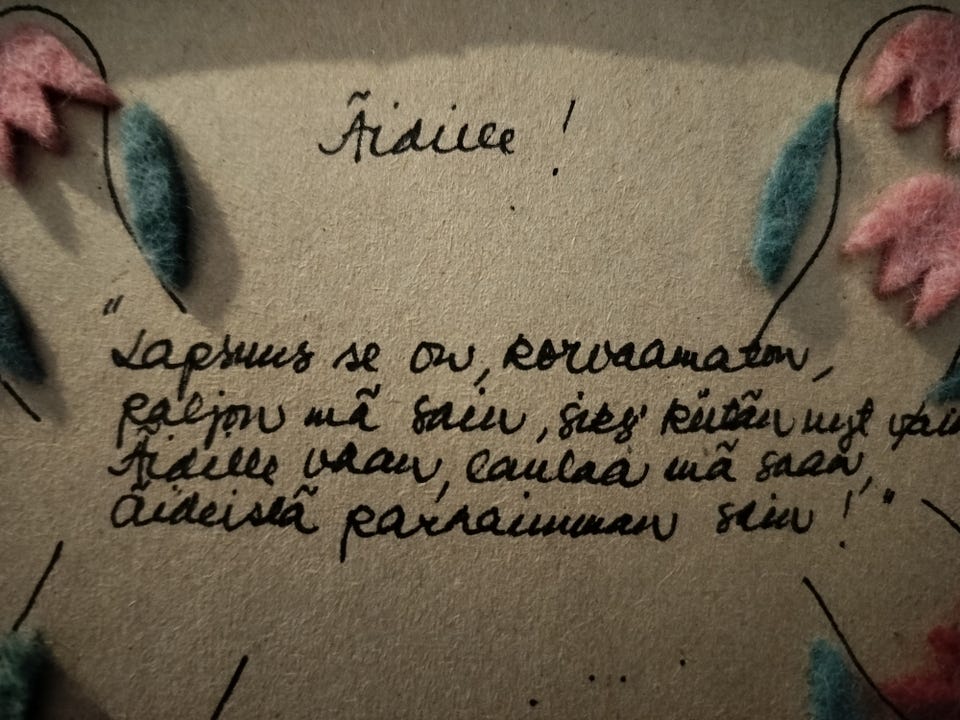 Äidille !
"Lapsuus se on, korvaamaton,
paljon mä sain, siks' kiitän nyt vain
Äidille vaan, laulaa mä saan,
äideistä parhaimman sain ! "